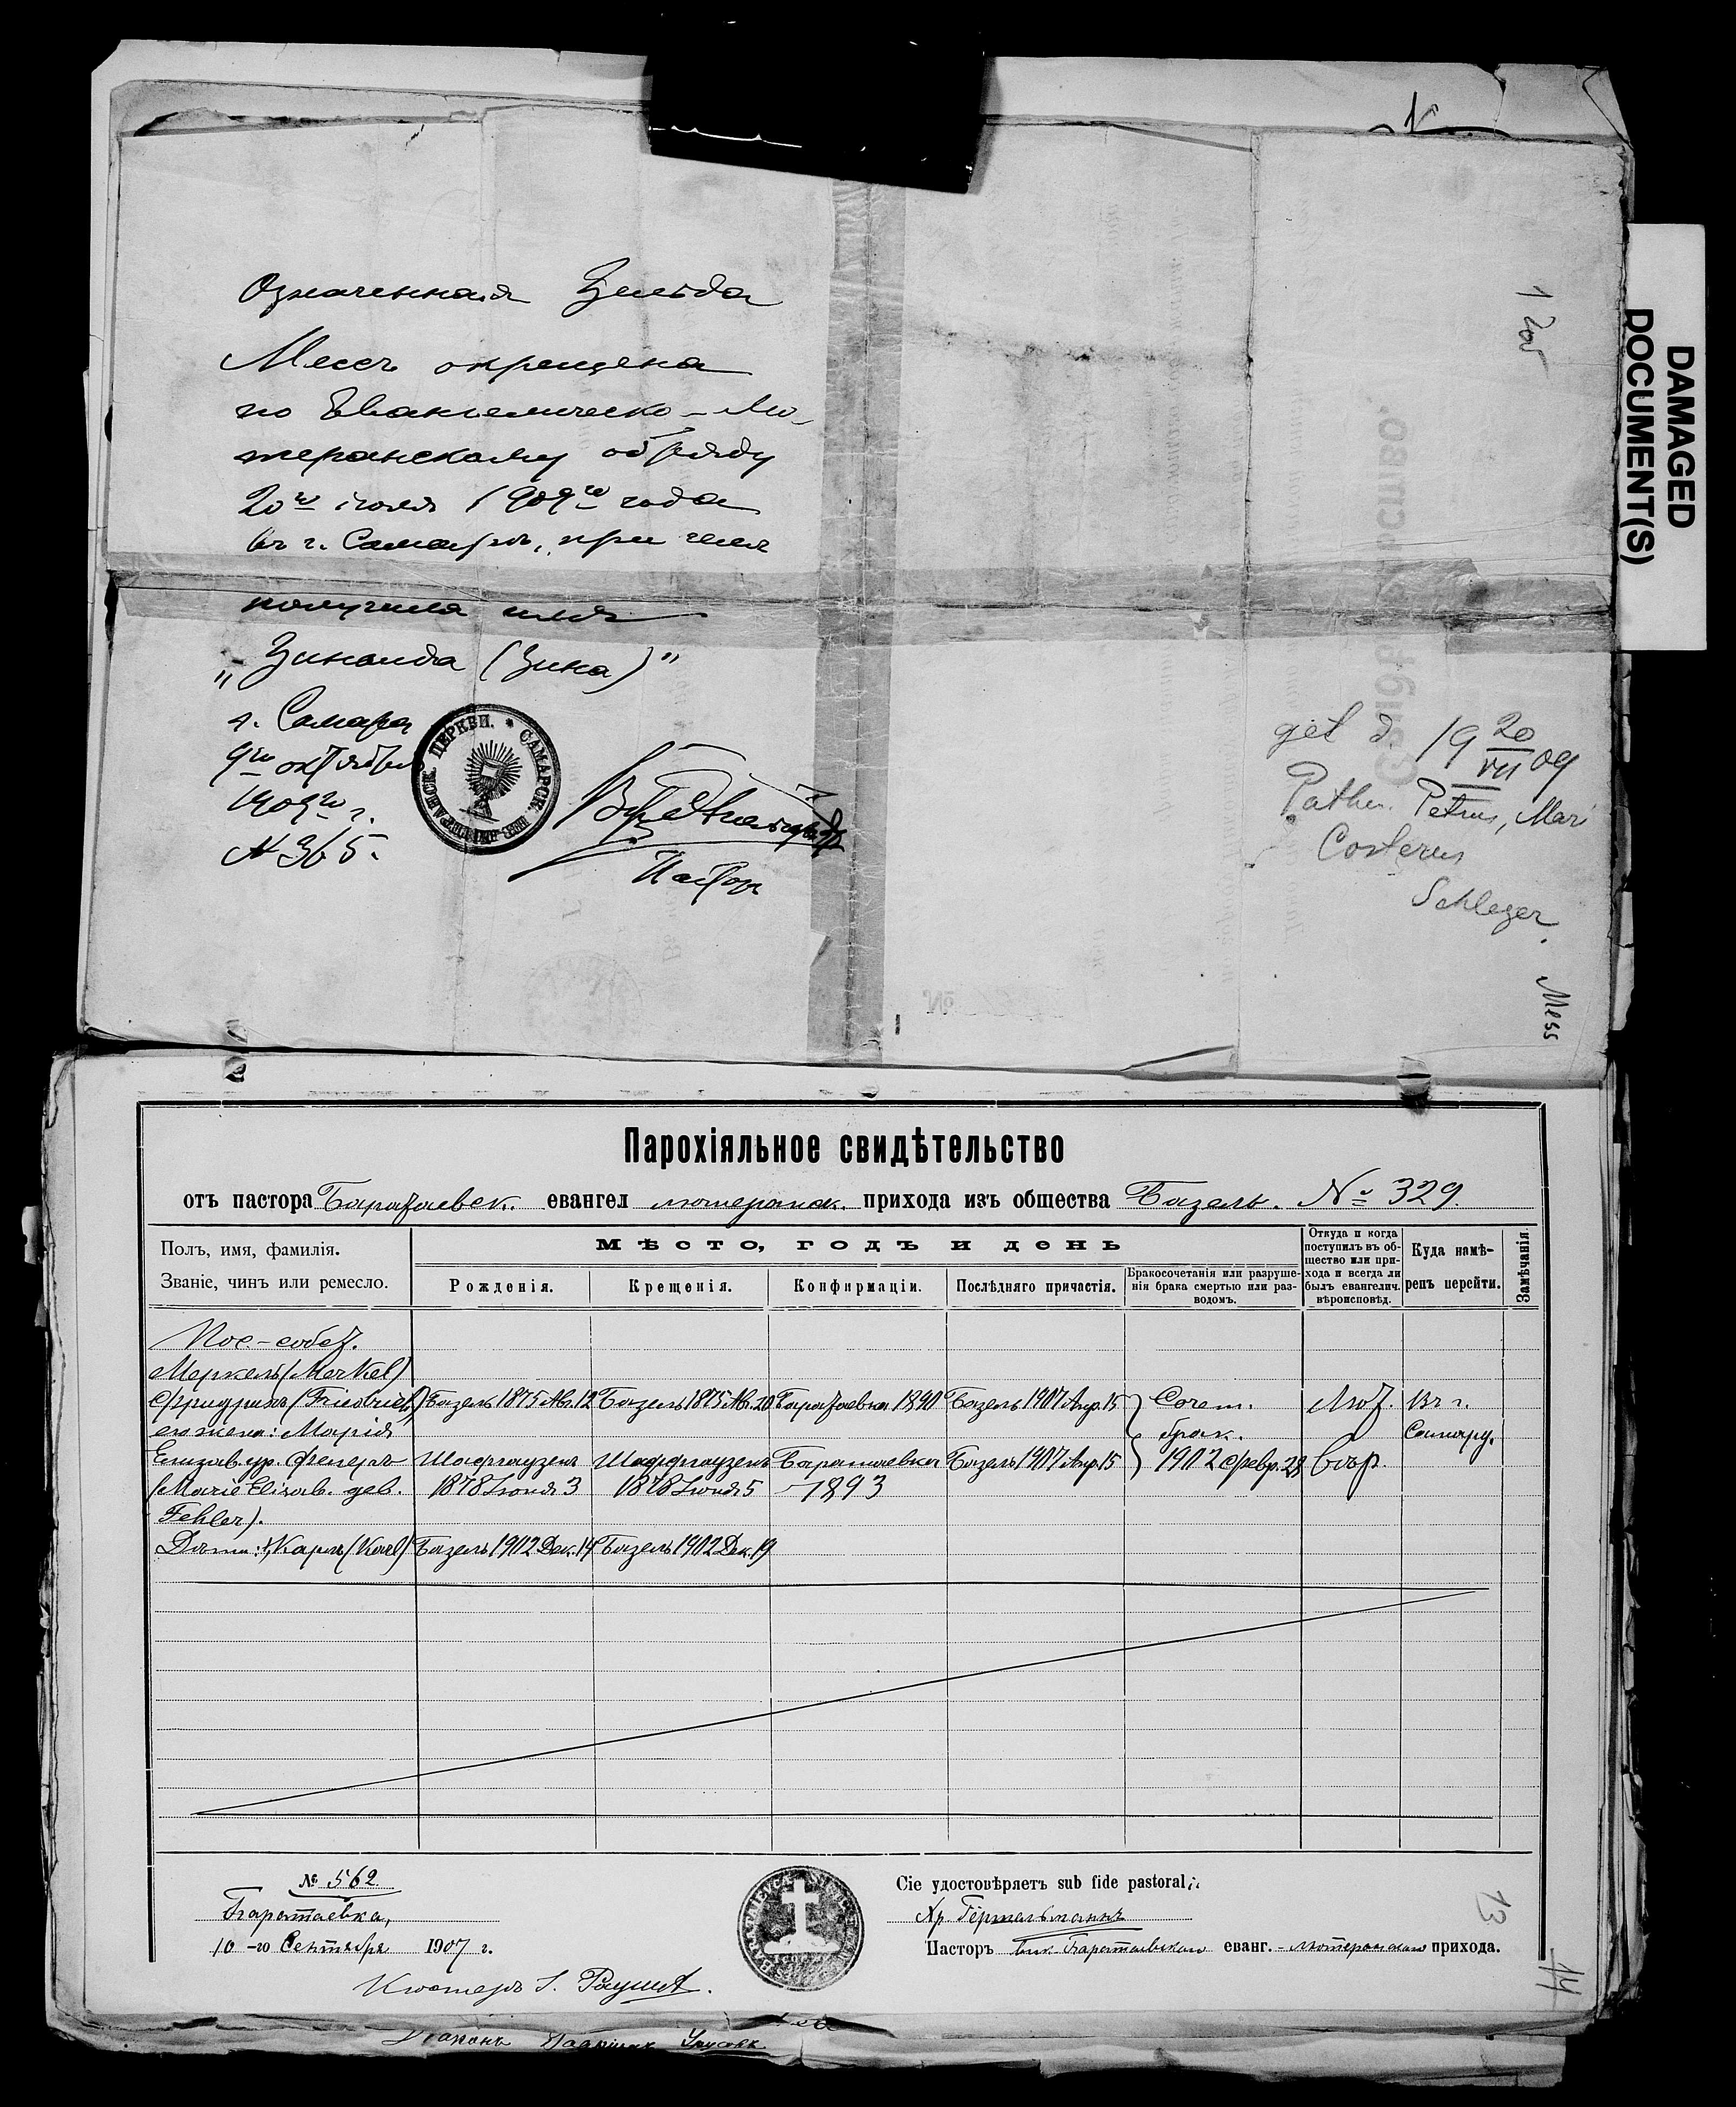 Означенная Зельда
Мессъ окрещена
по Евангелическо-Лю-
теранскому обряду
20го іюля 1909го года
въ г. Самарѣ, при чемъ
получила имя
„Зинаида (Зина)"
г. Самара
9го октября
1909го г.
№ 365.
ЦЕРКВИ. * САМАРСК. ЕВ.-ЛЮТЕРАНСК.
Пасторъ
1 200
DAMAGED
DOCUMENT(S)
get. d. 19 20/VII 09
Pathen. Petrus, Mari
Costerus
Schleger.
Mess
Парохіяльное свидѣтельство
отъ пастора Баратаевск. евангел лютеранск. прихода изъ общества Базель. № 329.
Полъ, имя, фамилія.
Званіе, чинъ или ремесло.
Мѣсто, годъ и день
Рожденія. Крещенія. Конфирмаціи. Послѣдняго причастія. Бракосочетанія или разрушенія брака смертью или разводомъ.
Откуда и когда поступилъ въ общество или прихода и всегда ли былъ евангелич. вѣроисповѣд.
Куда намѣренъ перейти.
Замѣчанія.
Пос.-собст.
Меркель (Merkel)
Фридрихъ (Friedrich) Базель 1875 Авг. 12 Базель 1875 Авг. 20 Баратаевка 1890 Базель 1907 Апр. 15 Сочет. Лют. Въ г.
его жена: Марія брак. Самару.
Елизав. ур. Фелеръ Шафгаузенъ Шафгаузенъ Баратаевка Базель 1907 Апр. 15 1902 Февр. 28 вѣр.
(Marie Elisab. geb. 1878 Іюня 3 1878 Іюня 5 1893
Fehler).
Дѣти: 1, Карлъ (Karl) Базель 1902 Дек. 14 Базель 1902 Дек. 19
№ 562
Баратаевка,
10-го Сентября 1907 г.
Кюстеръ
Сіе удостовѣряетъ sub fide pastorali:
Пасторъ Баратаевскаго еванг.-лютеранскаго прихода.
13
14